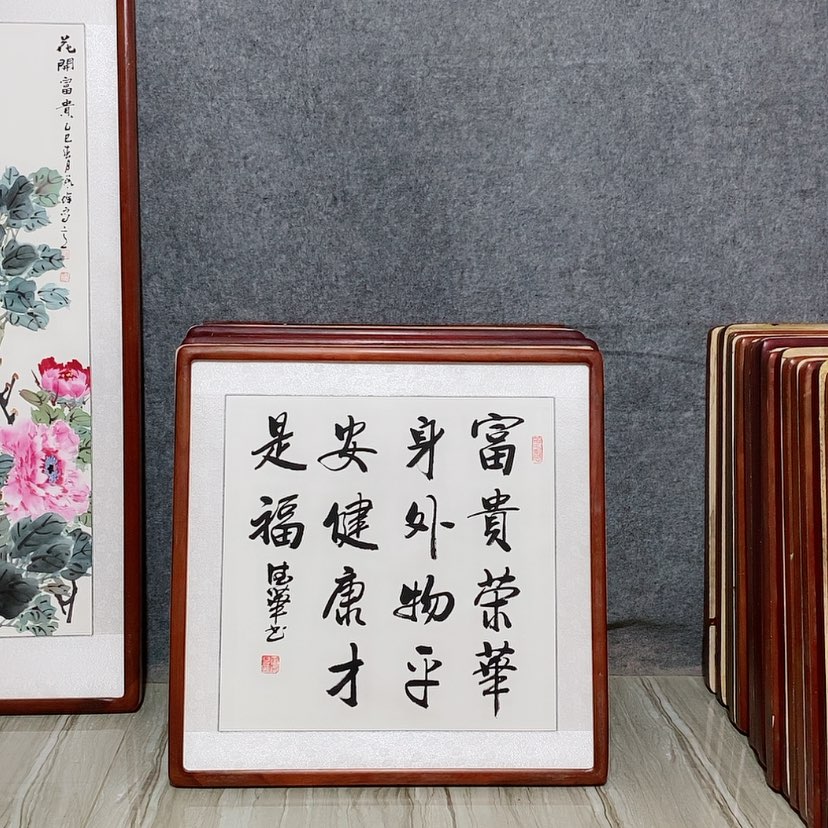 富貴荣華
身外物平
安健康才
是福
花開富貴